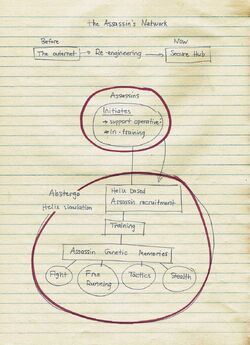 the Assassin's Network
Before
Now
The outernet
Re-engineering
Secure Hub
Assassins
Initiates
support operative
in-training
Abstergo
Helix simulation
Helix based
Assassin recruitment
Training
Assassin Genetic Memories
Fight
Free
Running
Tactics
Stealth